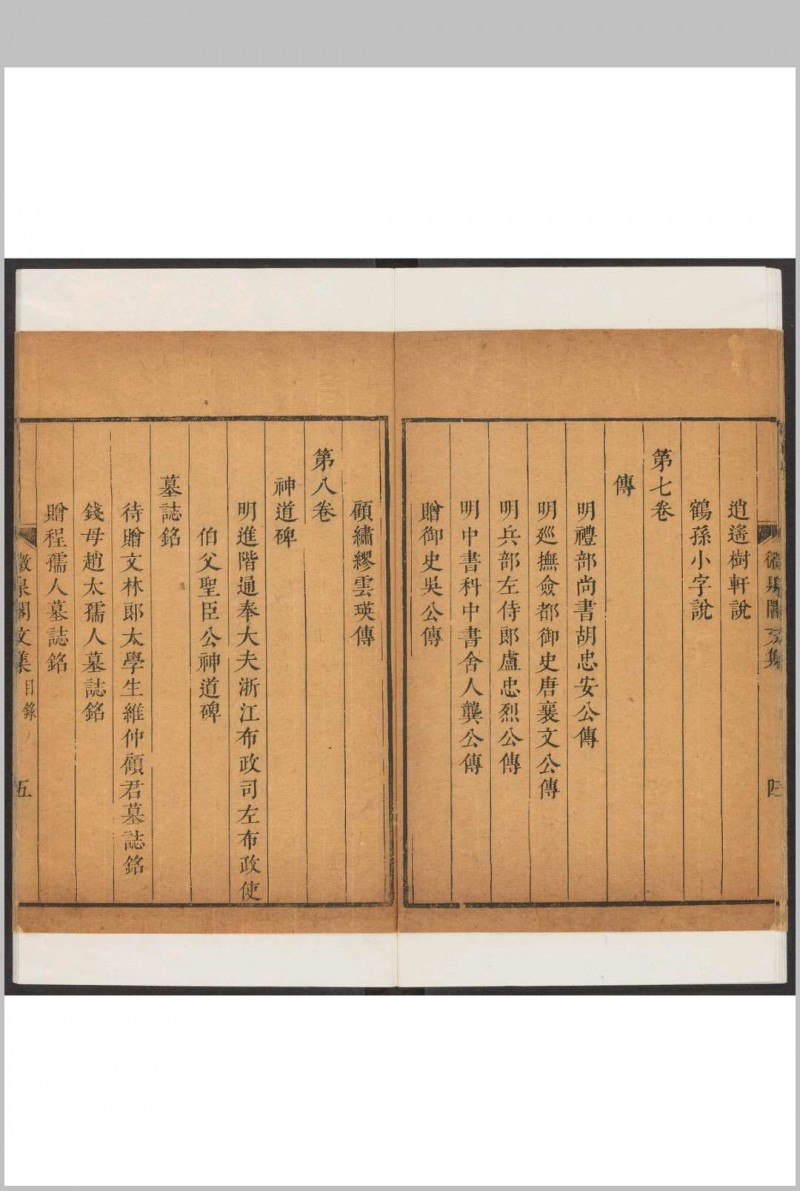 逍遙樹軒說
鶴孫小字說
第七卷
傳
明禮部尚書胡忠安公傳
明巡撫僉都御史唐襄文公傳
明兵部左侍郎盧忠烈公傳
明中書科中書舍人龔公傳
贈御史吳公傳
顧繡繆雲瑛傳
第八卷
神道碑
明進階通奉大夫浙江布政司左布政使
伯父聖臣公神道碑
墓誌銘
待贈文林郎太學生維仲顧君墓誌銘
錢母趙太孺人墓誌銘
贈程孺人墓誌銘
文集 目錄
五